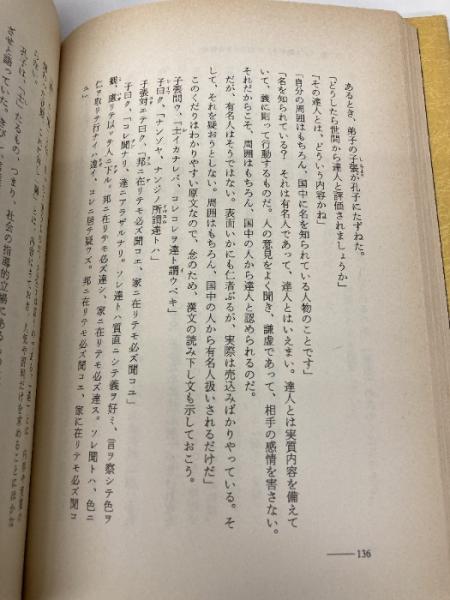 あるとき、弟子の子張が孔子にたずねた。
「どうしたら世間から達人と評価されましょうか」
「その達人とは、どういう内容かね」
「自分の周囲はもちろん、国中に名を知られている人物のことです」
「名を知られている？　それは有名人であって、達人とはいえまい。達人とは実質内容を備えて
いて、義に則って行動するものだ。人の意見をよく聞き、謙虚であって、相手の感情を害さない。
それだからこそ、周囲はもちろん、国中の人から達人と認められるのだ。
だが、有名人はそうではない。表面いかにも仁者ぶるが、実際は売込みばかりやっている。そ
して、それを疑おうとしない。周囲はもちろん、国中の人から有名人扱いされるだけだ」
このくだりはわかりやすい原文なので、念のため、漢文の読み下し文も示しておこう。
子張問ウ、「士イカナレバ、コレコレヲ達ト謂ウベキ」
子曰ク、「ナンゾヤ、ナンジノ所謂達トハ」
子張対エテ曰ク、「邦ニ在リテモ必ズ聞コエ、家ニ在リテモ必ズ聞コユ」
子曰ク、「コレ聞ナリ、達ニアラザルナリ。ソレ達トハ質直ニシテ義ヲ好ミ、言ヲ察シテ色ヲ
観、慮テ以ッテ人ニ下ル。邦ニ在リテモ必ズ達シ、家ニ在リテモ必ズ達ス。ソレ聞トハ、色ニ
仁ヲ取リテ行ナイハ違イ、コレニ居テ疑ワズ。邦ニ在リテモ必ズ聞コエ、家ニ在リテモ必ズ聞コ
ユ」
136
孔子は、「士」たるもの、つまり、社会の指導的立場にあるもの
させと語っていた。